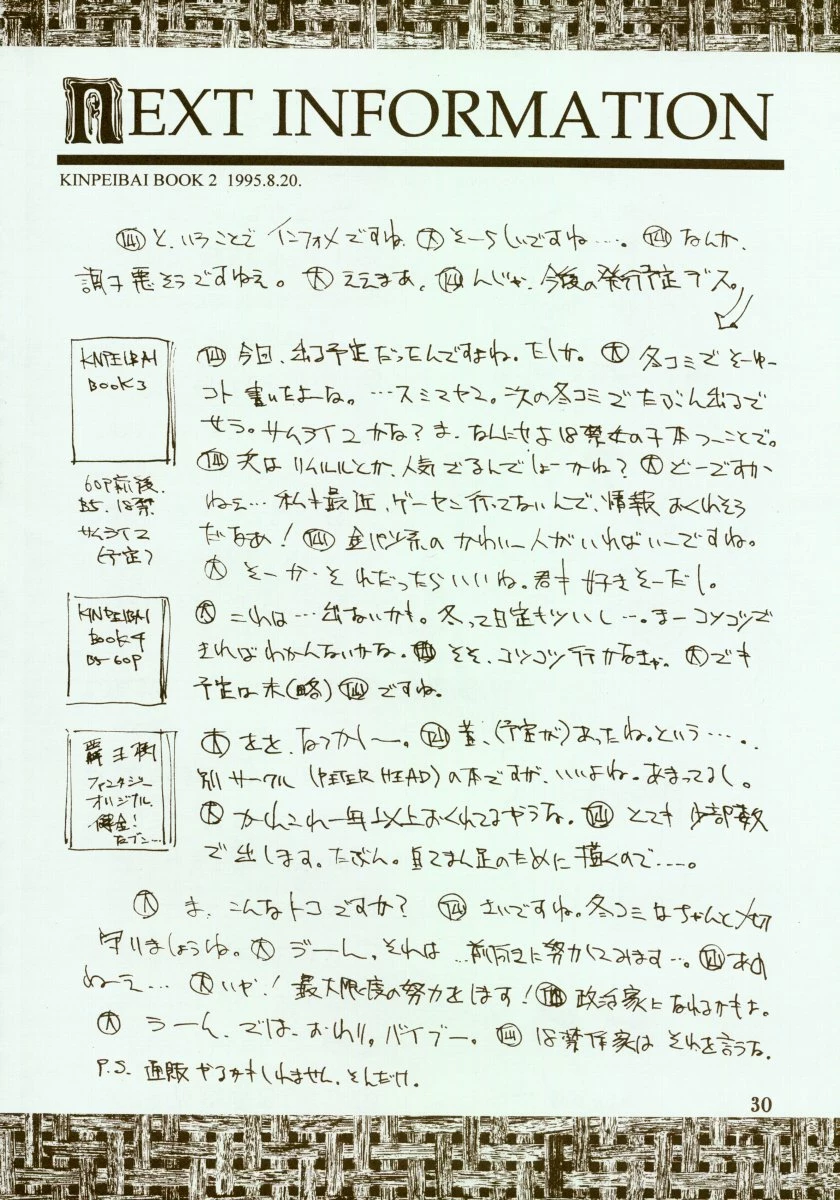 NEXT INFORMATION
KINPEIBAI BOOK 2 1995.8.20.
と、いうことで インフォメですね 大 そーらしいですね…。 なんか、
調子悪そうですねえ。 大 ええまあ、 んじゃ、今後の発行予定デス。
今回、出る予定だったんですよね。たしか。 大 冬コミでそーゆー
コト書いたよーな。 …スミマセン。次の冬コミでたぶん出るで
せう。サムライ2かな？ま、なんにせよ18禁女の子本つーことで。
次はリムルルとか、人気でるんでしょーかね？ 大 どーですか
ねえ… 私も最近、ゲーセン行ってないんで、情報おくれそう
だなあ！ 金パツ系のかわいー人がいればいーですね。
大 そーか・それだったらいいね。君も好きそーだし。
KINPEIBAI
BOOK3
60P前後、
B5、18禁
サムライ2
(予定)
大 これは…出ないかも。冬って日定もツいし…。まーコツコツで
きればわかんないかな。 そそ、コツコツ行かなきゃ。 大 でも
予定は未(略) ですね。
KINPEIBAI
BOOK4
B5 60P
大 をを、なつかし〜。 昔、(予定が)あったね。という…．．
別サークル (PETER HEAD)の本ですが、いいよね。あまってるし。
大 かれこれ一年以上おくれてるやうな。 とても少部数
で出します。たぶん。自マンまん足のために描くので…。
覇王樹
ファンタジー
オリジナル
大 ま、こんなトコですか？ さいですね。冬コミはちゃんと〆切
守りましょうね。 大 うーん、それは …前向きに努力してみます…。 あの
ねーえ… 大 いや！最大限度の努力をします！ 政治家になれるかもよ。
大 うーん、では、おわり。バイブー。 18禁作家はそれを言うな。
P.S. 通販やるかもしれません。そんだけ。
30